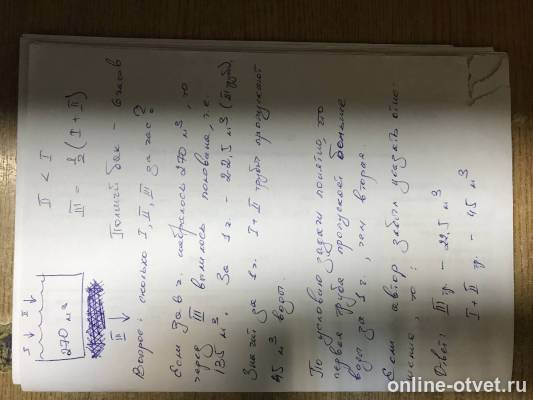 I ↓ II ↓
270 м³
III ↓
II < I
III = 1/2 (I + II)
Полный бак - 6 часов
Второе: сколько I, II, III за час?
Если за 6 ч. набралось 270 м³, то
через III вылилось половина, т.е.
135 м³. За 1 ч. - 22,5 м³ (III труба).
Значит за 1 ч. I + II трубы пропускают
45 м³ воды.
По условию задачи понятно, что
первая труба пропускает больше
воды за 1 ч., чем вторая.
Если автор забыл указать
то:
Ответ: III тр - 22,5 м³
I + II тр. - 45 м³
online-otvet.ru